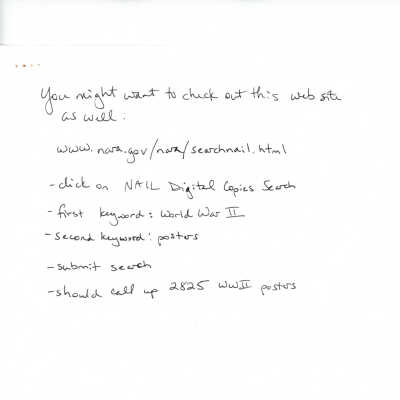 You might want to check out this web site
as well:
www.nara.gov/nara/searchnail.html
- click on NAIL Digital Copies Search
- first keyword: World War II
- second keyword: posters
- submit search
- should call up 2825 WWII posters